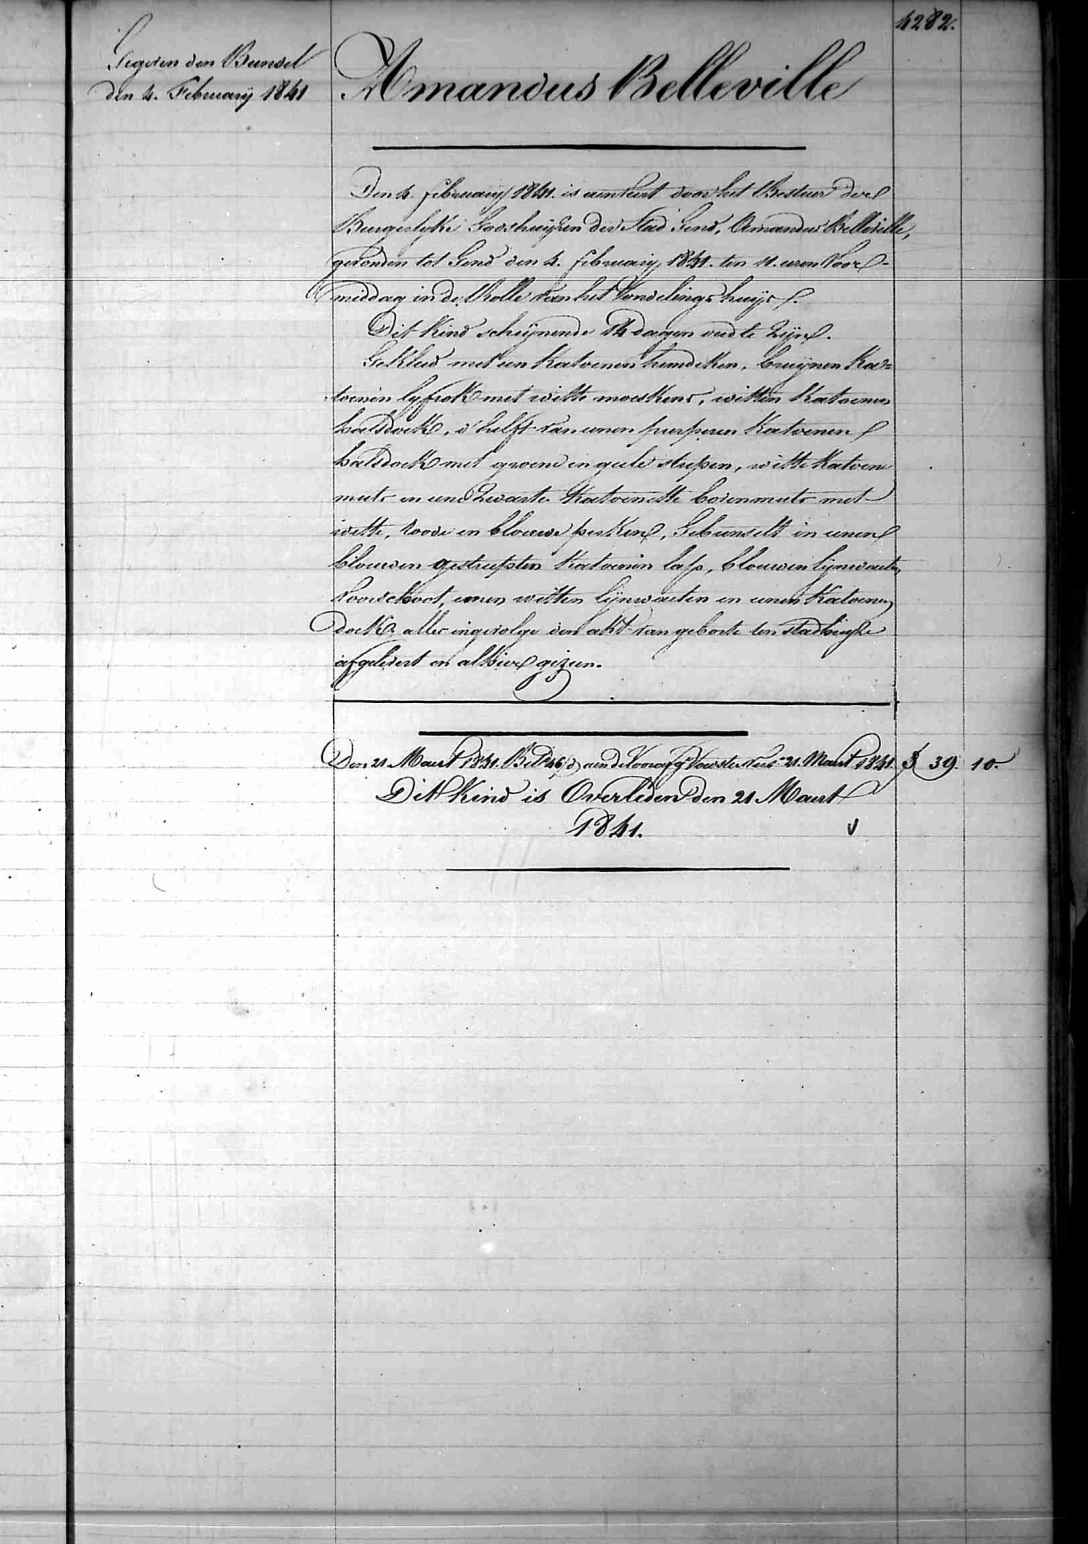 4282.
Gegeven den Bunsel
den 4. February 1841
Amandus Belleville
Den 4. february 1841. is aenveert door het Bestuer der
Burgerlyke Godshuizen der Stad Gend, Amandus Belleville,
gevonden tot Gend den 4. february 1841. ten 11. uren Voor-
middag in de Rolle van het Vondelings huys.
Dit Kind schijnende 14 dagen oud te zijn.
Gekleed met een Katoenen hemdeken, bruynen Ka-
toenen lyfrok met witte moeskens, witten Katoenen
halsdoek, d'helft van eenen purperen Katoenen
halsdoek met groene en geele strepen, witte Katoene
muts en eene zwarte Katoenette bovenmuts met
witte, roode en blouwe perken, Gebunselt in eenen
blouwen gestreepten Katoenen lap, blouwen lijnwaeten
Voorschoot, eenen witten lijnwaeten en eenen Katoenen
doek, alles ingevolge den akt van geboorte ten stadhuyse
afgelevert en alhier gezien.
Den 21 Maert 1841. Bet. 46 d. aen de Voorafg Voedster tot 21 Maert 1841. $ 39. 10.
Dit Kind is Overleden den 21 Maert
1841.